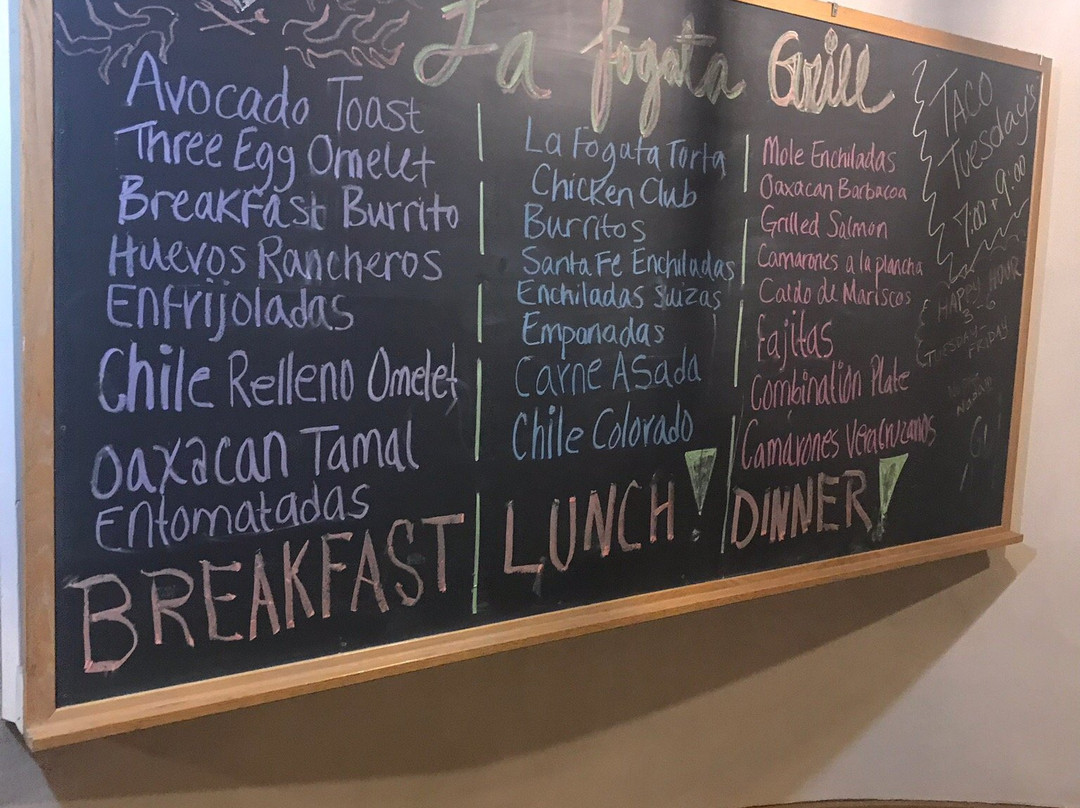 La Fogata Grill
Avocado Toast
Three Egg Omelet
Breakfast Burrito
Huevos Rancheros
Enfrijoladas
Chile Relleno Omelet
Oaxacan Tamal
Entomatadas
BREAKFAST
La Fogata Torta
Chicken Club
Burritos
Santa Fe Enchiladas
Enchiladas Suizas
Empanadas
Carne Asada
Chile Colorado
LUNCH!
Mole Enchiladas
Oaxacan Barbacoa
Grilled Salmon
Camarones a la plancha
Caldo de Mariscos
Fajitas
Combination Plate
Camarones Veracruzanos
DINNER!
TACO
Tuesday's
7:00 - 9:00
HAPPY HOUR
3-6
TUESDAY-
FRIDAY